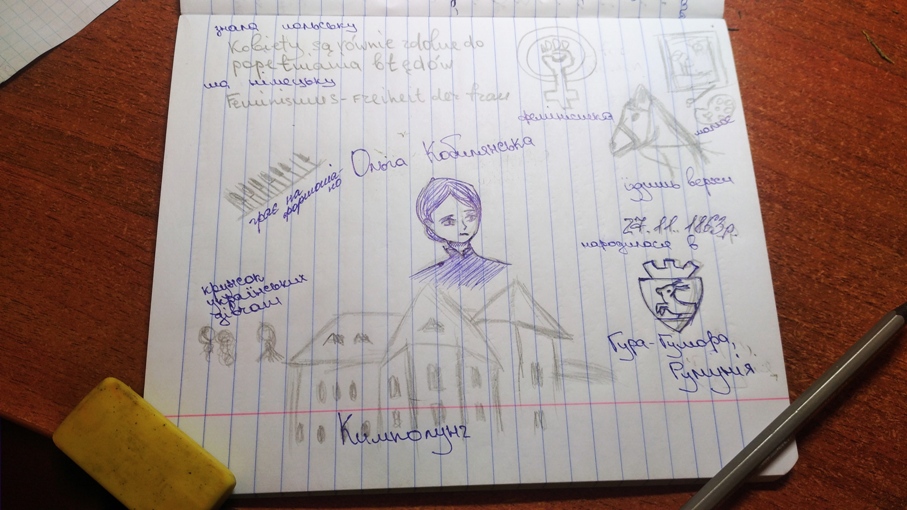 знала польську
Kobiety są równie zdolne do
popełniania błędów
та німецьку
Feminismus - Freiheit der Frau
феміністка
малює
Ольга Кобилянська
грає на
фортепіа-
но
їздить верхи
27.11.1863р.
народилася в
кружок
українських
дівчат
Гура-Гумора,
Румунія
Кимполунг